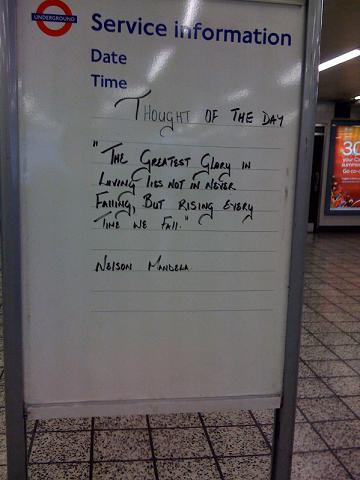 UNDERGROUND
Service information
Date
Time
Thought of the Day
"The Greatest Glory in
Living lies not in never
Falling, But Rising Every
Time we Fall."
Nelson Mandela
30